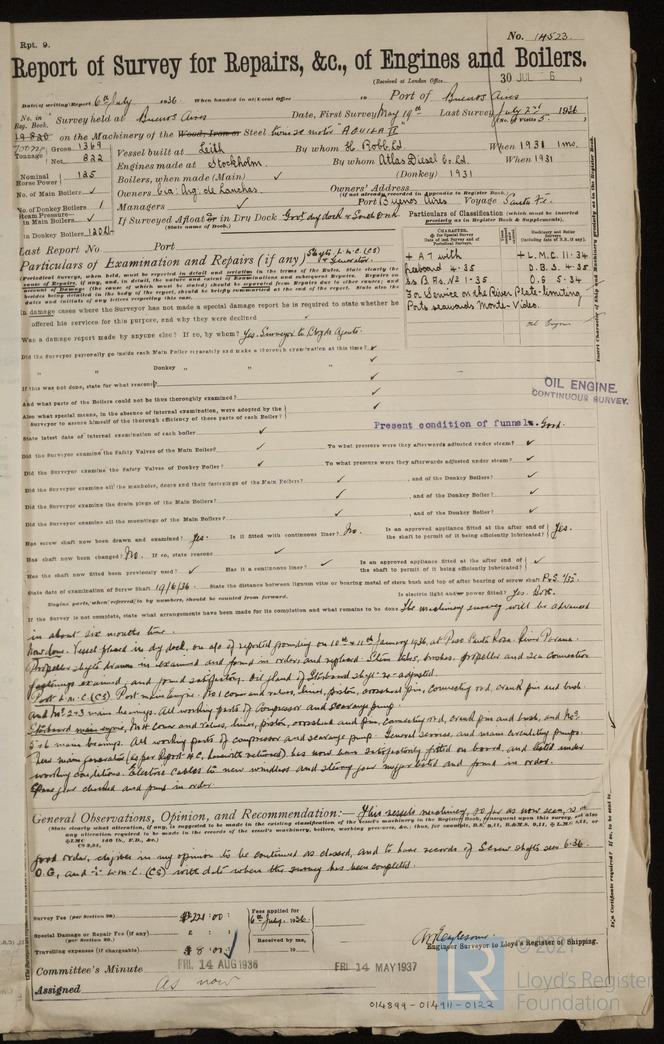 Rpt. 9.
No. 14523
Report of Survey for Repairs, &c., of Engines and Boilers.
(Received at London Office
30 JUL
Date (of writing) Report 6th July 1936 When handed in at Local Office to Port of Buenos Aires
No. in Reg. Book. Survey held at Buenos Aires Date, First Survey May 19th Last Survey July 2nd 1936
(No. of Visits 5.)
19820 on the Machinery of the Wood, Iron or Steel twin sc motor "AQUILA II"
Tonnage Gross 1369 Net 822
Vessel built at Leith By whom H. Robb Ld When 1931 1mo.
Engines made at Stockholm. By whom Atlas Diesel Co. Ld. When 1931
Nominal Horse Power 185
Boilers, when made (Main) ✓ (Donkey) 1931
No. of Main Boilers ✓
Owners Cia: Arg: de Lanchas. Owners' Address
(if not already recorded in Appendix to Register Book.)
No. of Donkey Boilers 1
Managers ✓ Port Buenos Aires Voyage Santa Fe.
Steam Pressure in Main Boilers ✓
in Donkey Boilers 120 lb
If Surveyed Afloat or in Dry Dock Govt dry dock & South Dock
(State name of Dock.)
Particulars of Classification (which must be inserted precisely as in Register Book & Supplements).
Last Report No. Port
Particulars of Examination and Repairs (if any) Shafts, L.M.C. (CS) & Generator.
CHARACTER.
Machinery and Boiler Surveys (including date of N.B., if any).
+ A 1 with
freeboard 4.35
ss B.As. No 1-35
For Service on the River Plate-limiting
Ports seawards Monte-Video.
+ L.M.C. 11.34
D.B.S. 4.35
O.G. 5.34
Oil Engine
In damage cases where the Surveyor has not made a special damage report he is required to state whether he
offered his services for this purpose, and why they were declined ✓
Was a damage report made by anyone else? If so, by whom? Yes. Surveyor to Lloyds Agents.
Did the Surveyor personally go inside each Main Boiler separately and make a thorough examination at this time? ✓
" " Donkey " " " ✓
If this was not done, state for what reasons? ✓
OIL ENGINE.
CONTINUOUS SURVEY.
And what parts of the Boilers could not be thus thoroughly examined? ✓
Also what special means, in the absence of internal examination, were adopted by the
Surveyor to assure himself of the thorough efficiency of those parts of each Boiler? ✓
Present condition of funnels. Good.
State latest date of internal examination of each boiler ✓
Did the Surveyor examine the Safety Valves of the Main Boiler? ✓ To what pressure were they afterwards adjusted under steam? ✓
Did the Surveyor examine the Safety Valves of Donkey Boiler? ✓ To what pressure were they afterwards adjusted under steam? ✓
Did the Surveyor examine all the manholes, doors and their fastenings of the Main Boilers? ✓ , and of the Donkey Boilers? ✓
Did the Surveyor examine the drain plugs of the Main Boilers? ✓ , and of the Donkey Boiler? ✓
Did the Surveyor examine all the mountings of the Main Boilers? ✓ , and of the Donkey Boilers? ✓
Has screw shaft now been drawn and examined? Yes. Is it fitted with continuous liner? No. Is an approved appliance fitted at the after end of the shaft to permit of it being efficiently lubricated? Yes.
Has shaft now been changed? No. If so, state reasons ✓
Has the shaft now fitted been previously used? ✓ Has it a continuous liner? ✓ Is an approved appliance fitted at the after end of the shaft to permit of it being efficiently lubricated? ✓
State date of examination of Screw Shaft 19/6/36. State the distance between lignum vitæ or bearing metal of stern bush and top of after bearing of screw shaft P&S 1/32".
Engine parts, when referred to by numbers, should be counted from forward. Is electric light and/or power fitted? Yes. Both.
If the Survey is not complete, state what arrangements have been made for its completion and what remains to be done The machinery survey will be advanced
in about six months time.
Now done. Vessel placed in dry dock, on a/c of reported grounding on 10th & 11th January 1936, at Paso Santa Rosa. River Parana.
Propeller shafts drawn in examined and found in order and replaced. Stern tubes, bushes, propeller and sea connection
fastenings examined, and found satisfactory. Oil gland of Starboard shaft re-adjusted.
Port L.M.C. (CS) Port main Engine. No 1 cover and valves, liner, piston, crosshead pin, connecting rod, crank pin and bush.
and Nos 2 & 3 main bearings. All working parts of Compressor and scavenge pump.
Starboard main engine, No 4 cover and valves, liner, piston, crosshead and pin, connecting rod, crank pin and bush, and Nos
5 & 6 main bearings. All working parts of compressor and scavenge pump. General service, and main circulating pumps.
New main generator (as per Report 4C, herewith returned) has now been satisfactorily fitted on board, and tested under
working conditions. Electric Cables to new windlass and steering gear megger tested and found in order.
Spare gear checked and found in order.
General Observations, Opinion, and Recommendation:— This vessels machinery, so far as now seen, is in
(State clearly what alteration, if any, is suggested to be made in the existing classification of the vessel's machinery in the Register Book, consequent upon this survey, and also
any alteration required to be made in the records of the vessel's machinery, boilers, working pressures, &c.; thus, for example, B.S. 9,11, B.&M.S. 9,11, ✠ L.M.C. 9,11, or
good order, eligible in my opinion to be continued as classed, and to have records of Screw Shafts seen 6.36.
O.G, and + L.M.C. (CS) with date when the survey has been completed.
Survey Fee (per Section 29) $ 221.00 :
Special Damage or Repair Fee (if any) £ : :
(per Section 29.)
Travelling expenses (if chargeable) $ 8.00
Fees applied for
6th July. 1936.
Received by me,
Engineer Surveyor to Lloyd's Register of Shipping.
Committee's Minute FRI. 14 AUG 1936 FRI. 14 MAY 1937
Assigned as now
© 2021
LR
Lloyd's Register
Foundation
014899-014911-0122